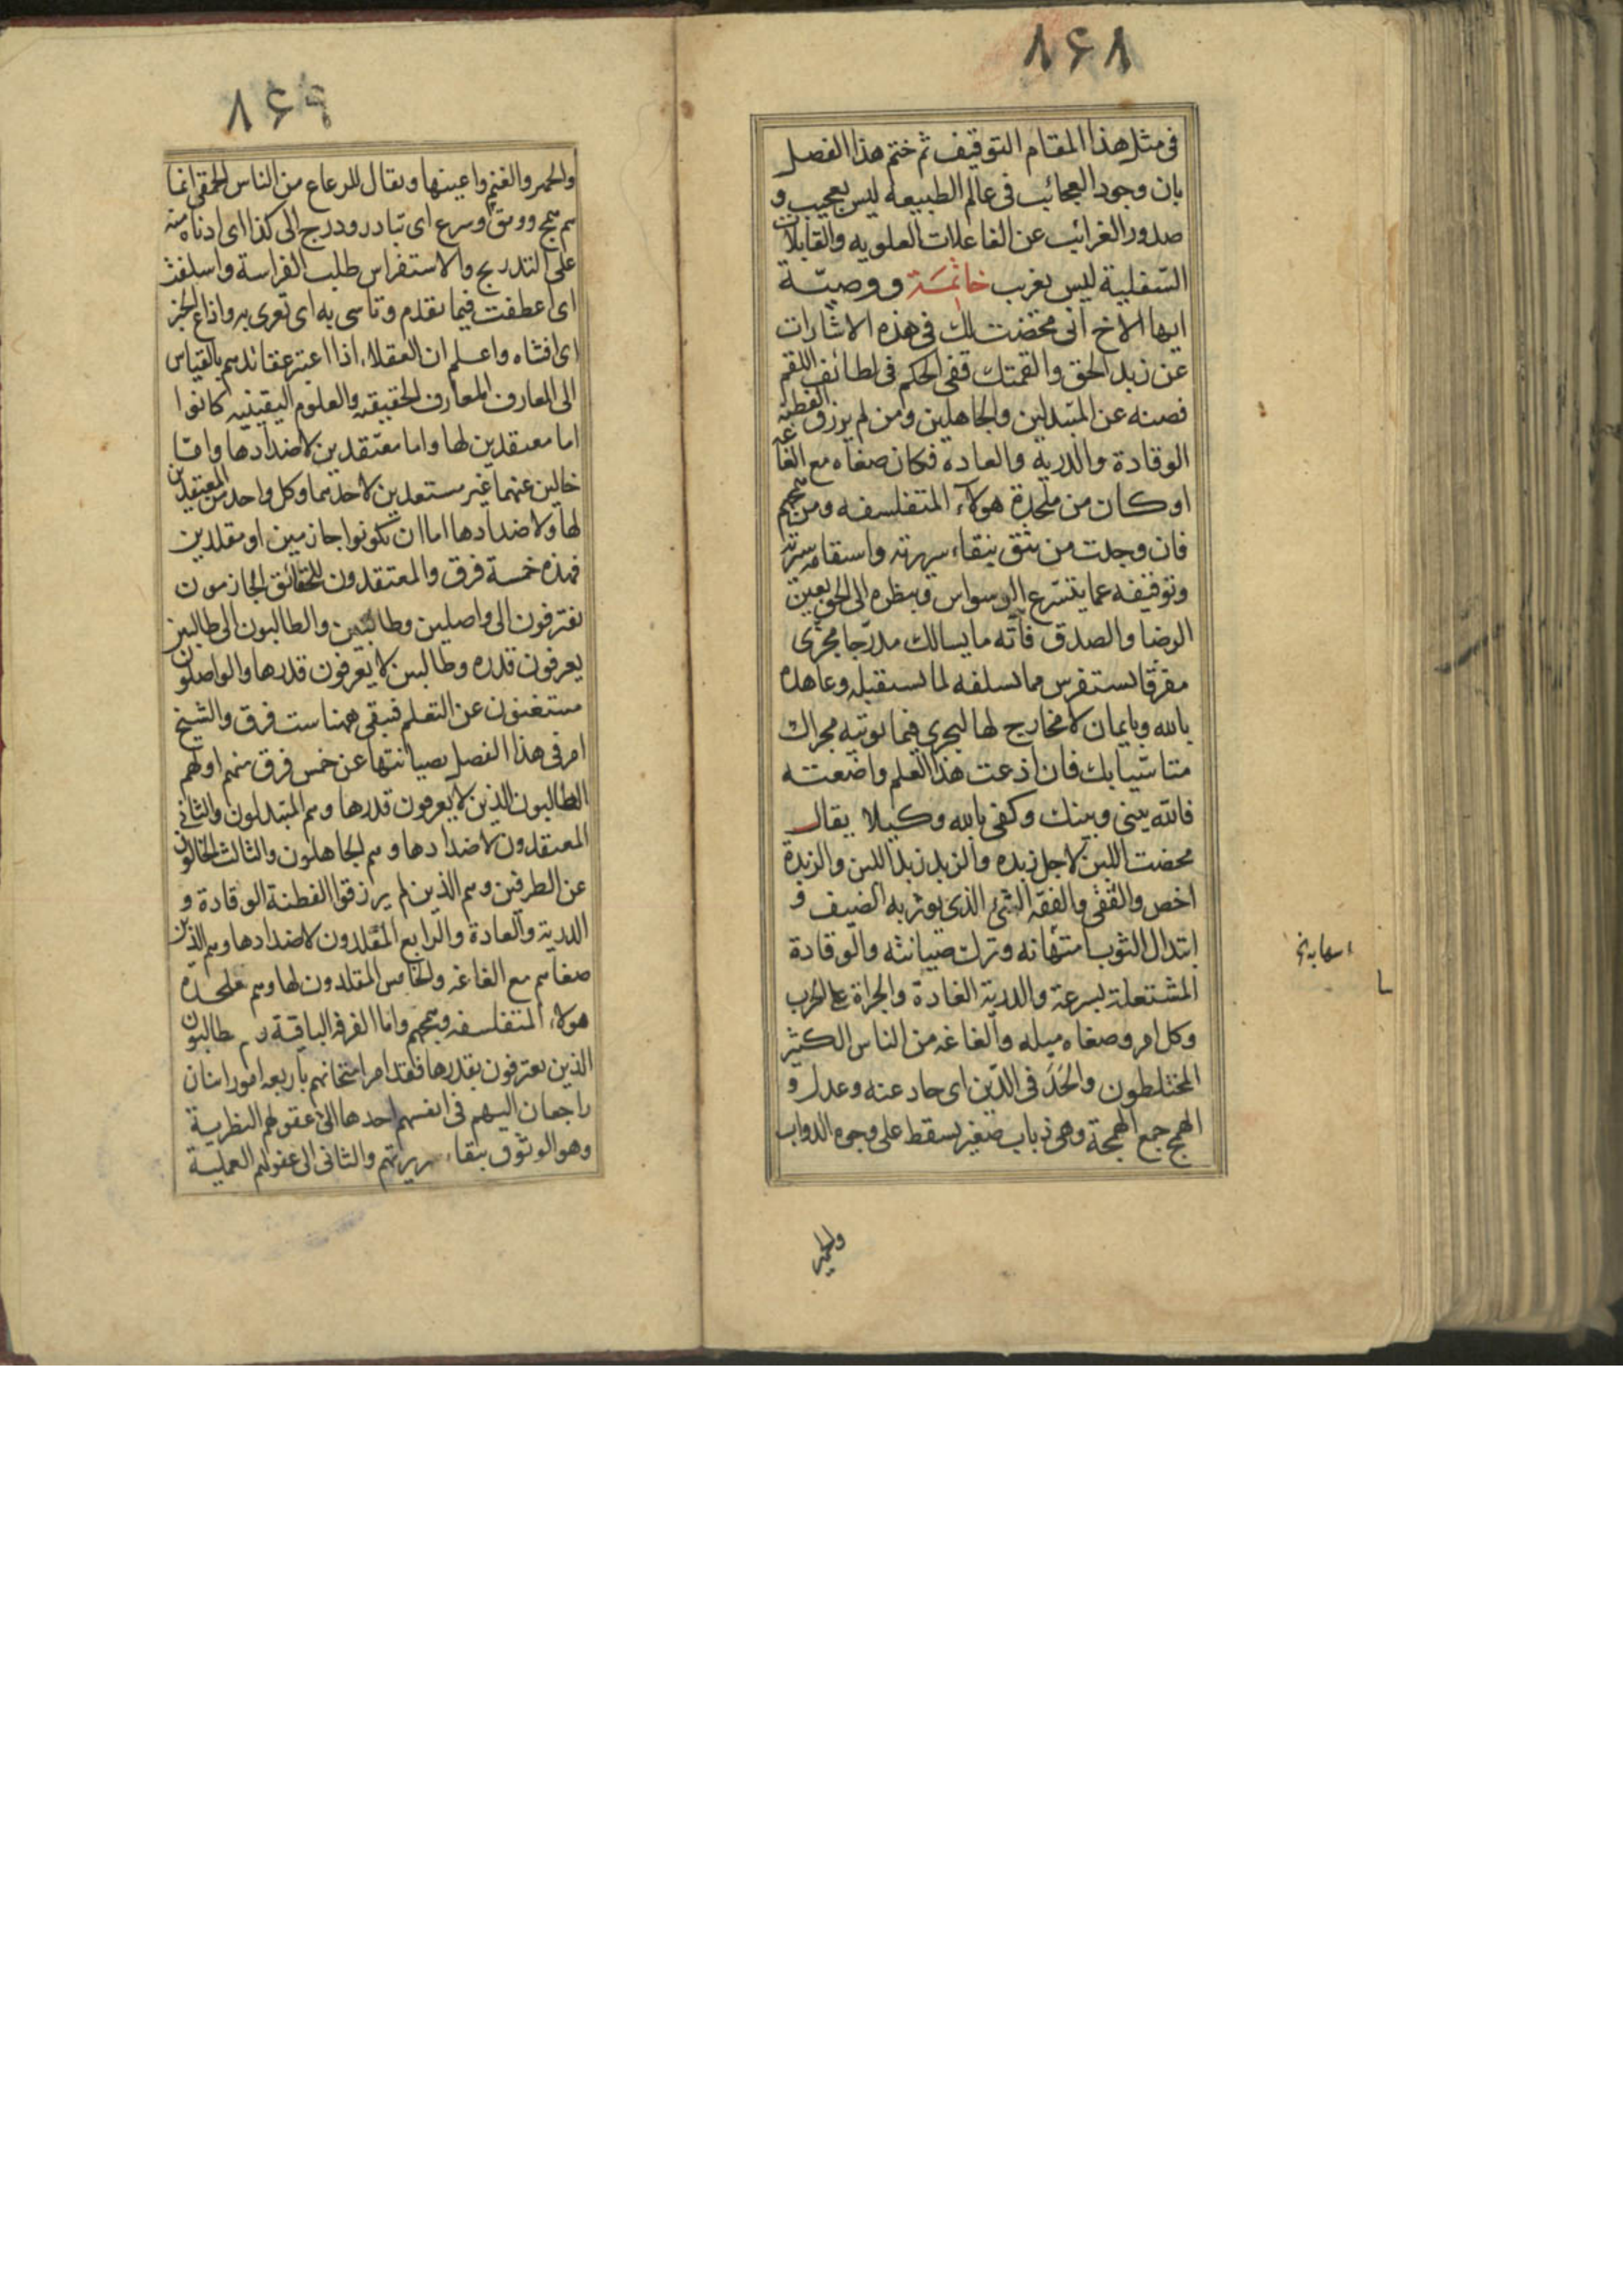 ۸۶۸
فی مثل هذا المقام التوقیف ثم ختم هذا الفصل
بان وجود العجائب فی عالم الطبیعه لیس بعجیب و
صدور الغرائب عن الفاعلات العلویه والقابلات
السفلیة لیس بغریب خاتمة ووصیة
ایها الاخ انی مخضت لك فی هذه الاشارات
عن زبد الحق والقمتك قفی الحکم فی لطائف اللقم
فصنه عن المبتذلین والجاهلین ومن لم یرزق الفطنه
الوقادة والدربه والعادة فکان صغاه مع الغاغه
او کان من ملحدة هولاء المتفلسفه ومن همجهم
فان وجدت من تثق بنقاء سریرته واستقامة سیرته
وتوقیفه عما یتسرع الیه الوسواس وبنظره الی الحق بعین
الرضا والصدق فآته ما یسالك مدرجا مجزی
مفرقا تستفرس مما تسلفه لما تستقبله وعاهده
بالله وبایمان لا مخارج لها لیجری فیما توتیه مجراك
متاسیا بك فان اذعت هذا العلم واضعته
فالله بینی وبینك وکفی بالله وکیلا یقال
مخضت اللبن لاجل زبده والزبد زبد اللبن والزبدة
اخص والقفی والقفیة الشیء الذی یوثر به الضیف و
ابتذال الثوب امتهانه وترك صیانته والوقادة
المشتعلة بسرعة والدربة العادة والجراة علی الحرب
وکل امر وصغاه میله والغاغه من الناس الکثیر
المختلطون والحد فی الدین ای حاد عنه وعدل و
الهمج جمع الهمجة وهی ذباب صغیر یسقط علی وجوه الدواب
والحمیر
۸۶۹
والحمر والغنم واعینها ویقال للرعاع من الناس الحمقی انما
هم همج ووثق وتسرع ای تبادر ودرج الی کذا ای ادناه منه
علی التدریج والاستفراس طلب الفراسة واسلفت
ای اعطیت فیما تقدم وتاسی به ای تعزی به واذاع الخبر
ای افشاه واعلم ان العقلاء اذا اعتبر عقائدهم بالقیاس
الی المعارف المعارف الحقیقیه والعلوم الیقینیه کانوا
اما معتقدین لها واما معتقدین لاضدادها واما
خالین عنهما غیر مستعدین لاحدهما وکل واحد من المعتقدین
لها ولاضدادها اما ان یکونوا جازمین او مقلدین
فهذه خمسة فرق والمعتقدون للحقائق الجازمون
یفترقون الی واصلین وطالبین والطالبون الی طالبین
یعرفون قدره وطالبین لا یعرفون قدرها والواصلون
مستغنون عن التعلم فیبقی ههنا ست فرق والشیخ
امر فی هذا الفصل بصیانتها عن خمس فرق منهم اولهم
الطالبون الذین لا یعرفون قدرها وهم المبتذلون والثانی
المعتقدون لاضدادها وهم الجاهلون والثالث الخالون
عن الطرفین وهم الذین لم یرزقوا الفطنة الوقادة و
الدربة والعادة والرابع المقلدون لاضدادها وهم الذین
صغاهم مع الغاغه والخامس المقلدون لها وهم ملحدة
هولاء المتفلسفه وهمجهم واما الفرقه الباقیة وهم طالبون
الذین یعترفون بقدرها فقد امر امتحانهم باربعه امور اثنان
راجعان الیهم فی انفسهم احدها الی عقولهم النظریة
وهو الوثوق بنقاء سریرتهم والثانی الی عقولهم العملیة